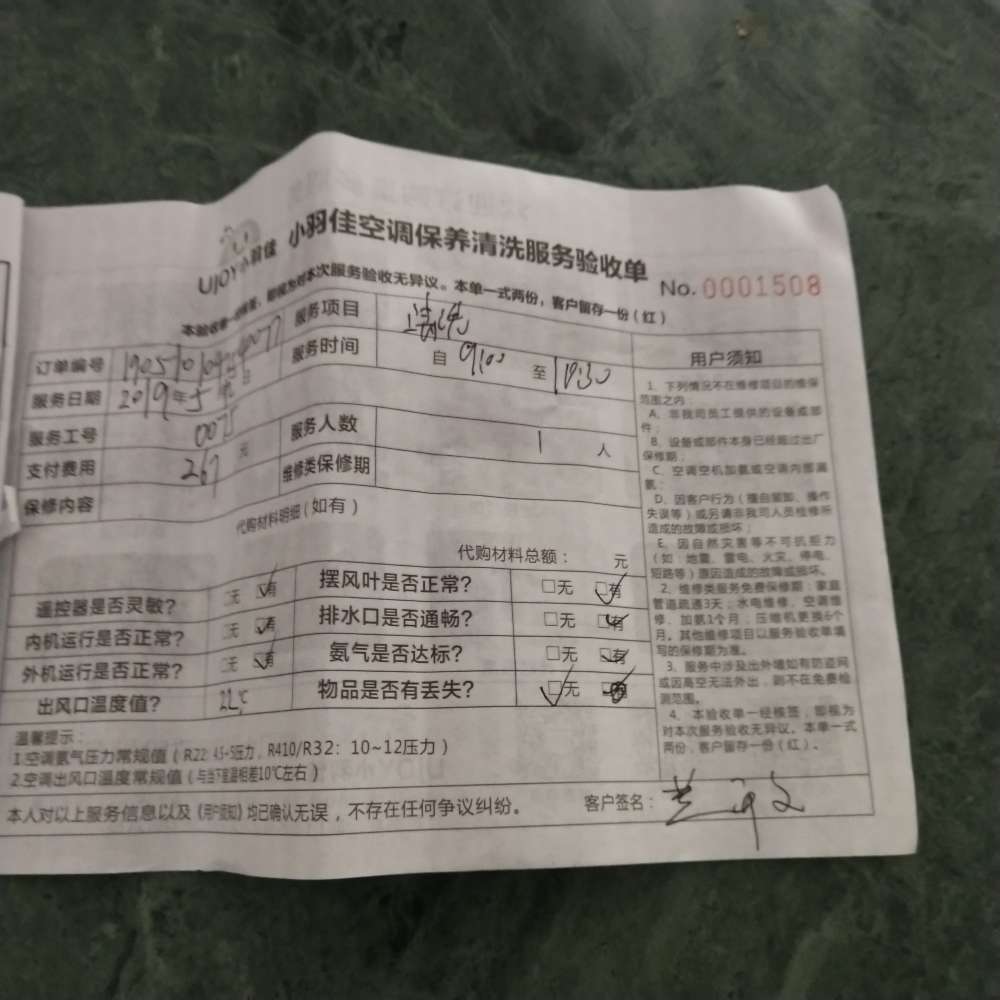 UJOY小羽佳 小羽佳空调保养清洗服务验收单
No.0001508
本验收单一经核签，即视为对本次服务验收无异议。本单一式两份，客户留存一份（红）
订单编号
服务项目 清洗
服务日期 2019年5
服务时间 自 9:00 至 10:30
服务工号
服务人数 1 人
支付费用 267 元
维修类保修期
保修内容
代购材料明细（如有）
代购材料总额： 元
遥控器是否灵敏? □无 □有
摆风叶是否正常? □无 □有
内机运行是否正常? □无 □有
排水口是否通畅? □无 □有
外机运行是否正常? □无 □有
氨气是否达标? □无 □有
出风口温度值? 22℃
物品是否有丢失? □无 □有
温馨提示：
1.空调氨气压力常规值（R22: 4.5~5压力，R410/R32：10~12压力）
2.空调出风口温度常规值（与当下室温相差10℃左右）
本人对以上服务信息以及《用户须知》均已确认无误，不存在任何争议纠纷。
客户签名：
用户须知
1、下列情况不在维修项目的维保
范围之内：
A、非我司员工提供的设备或部
件；
B、设备或部件本身已经超过出厂
保修期；
C、空调空机加氨或空调内部漏
氨；
D、因客户行为（擅自装卸、操作
失误等）或另请非我司人员检修所
造成的故障或损坏；
E、因自然灾害等不可抗拒力
（如：地震、雷电、火灾、停电、
短路等）原因造成的故障或损坏。
2、维修类服务免费保修期：家庭
管道疏通3天；水电维修、空调维
修、加氨1个月；压缩机更换6个
月。其他维修项目以服务验收单填
写的保修期为准。
3、服务中涉及出外墙如有防盗网
或因高空无法外出，则不在免费检
测范围。
4、本验收单一经核签，即视为
对本次服务验收无异议。本单一式
两份，客户留存一份（红）。